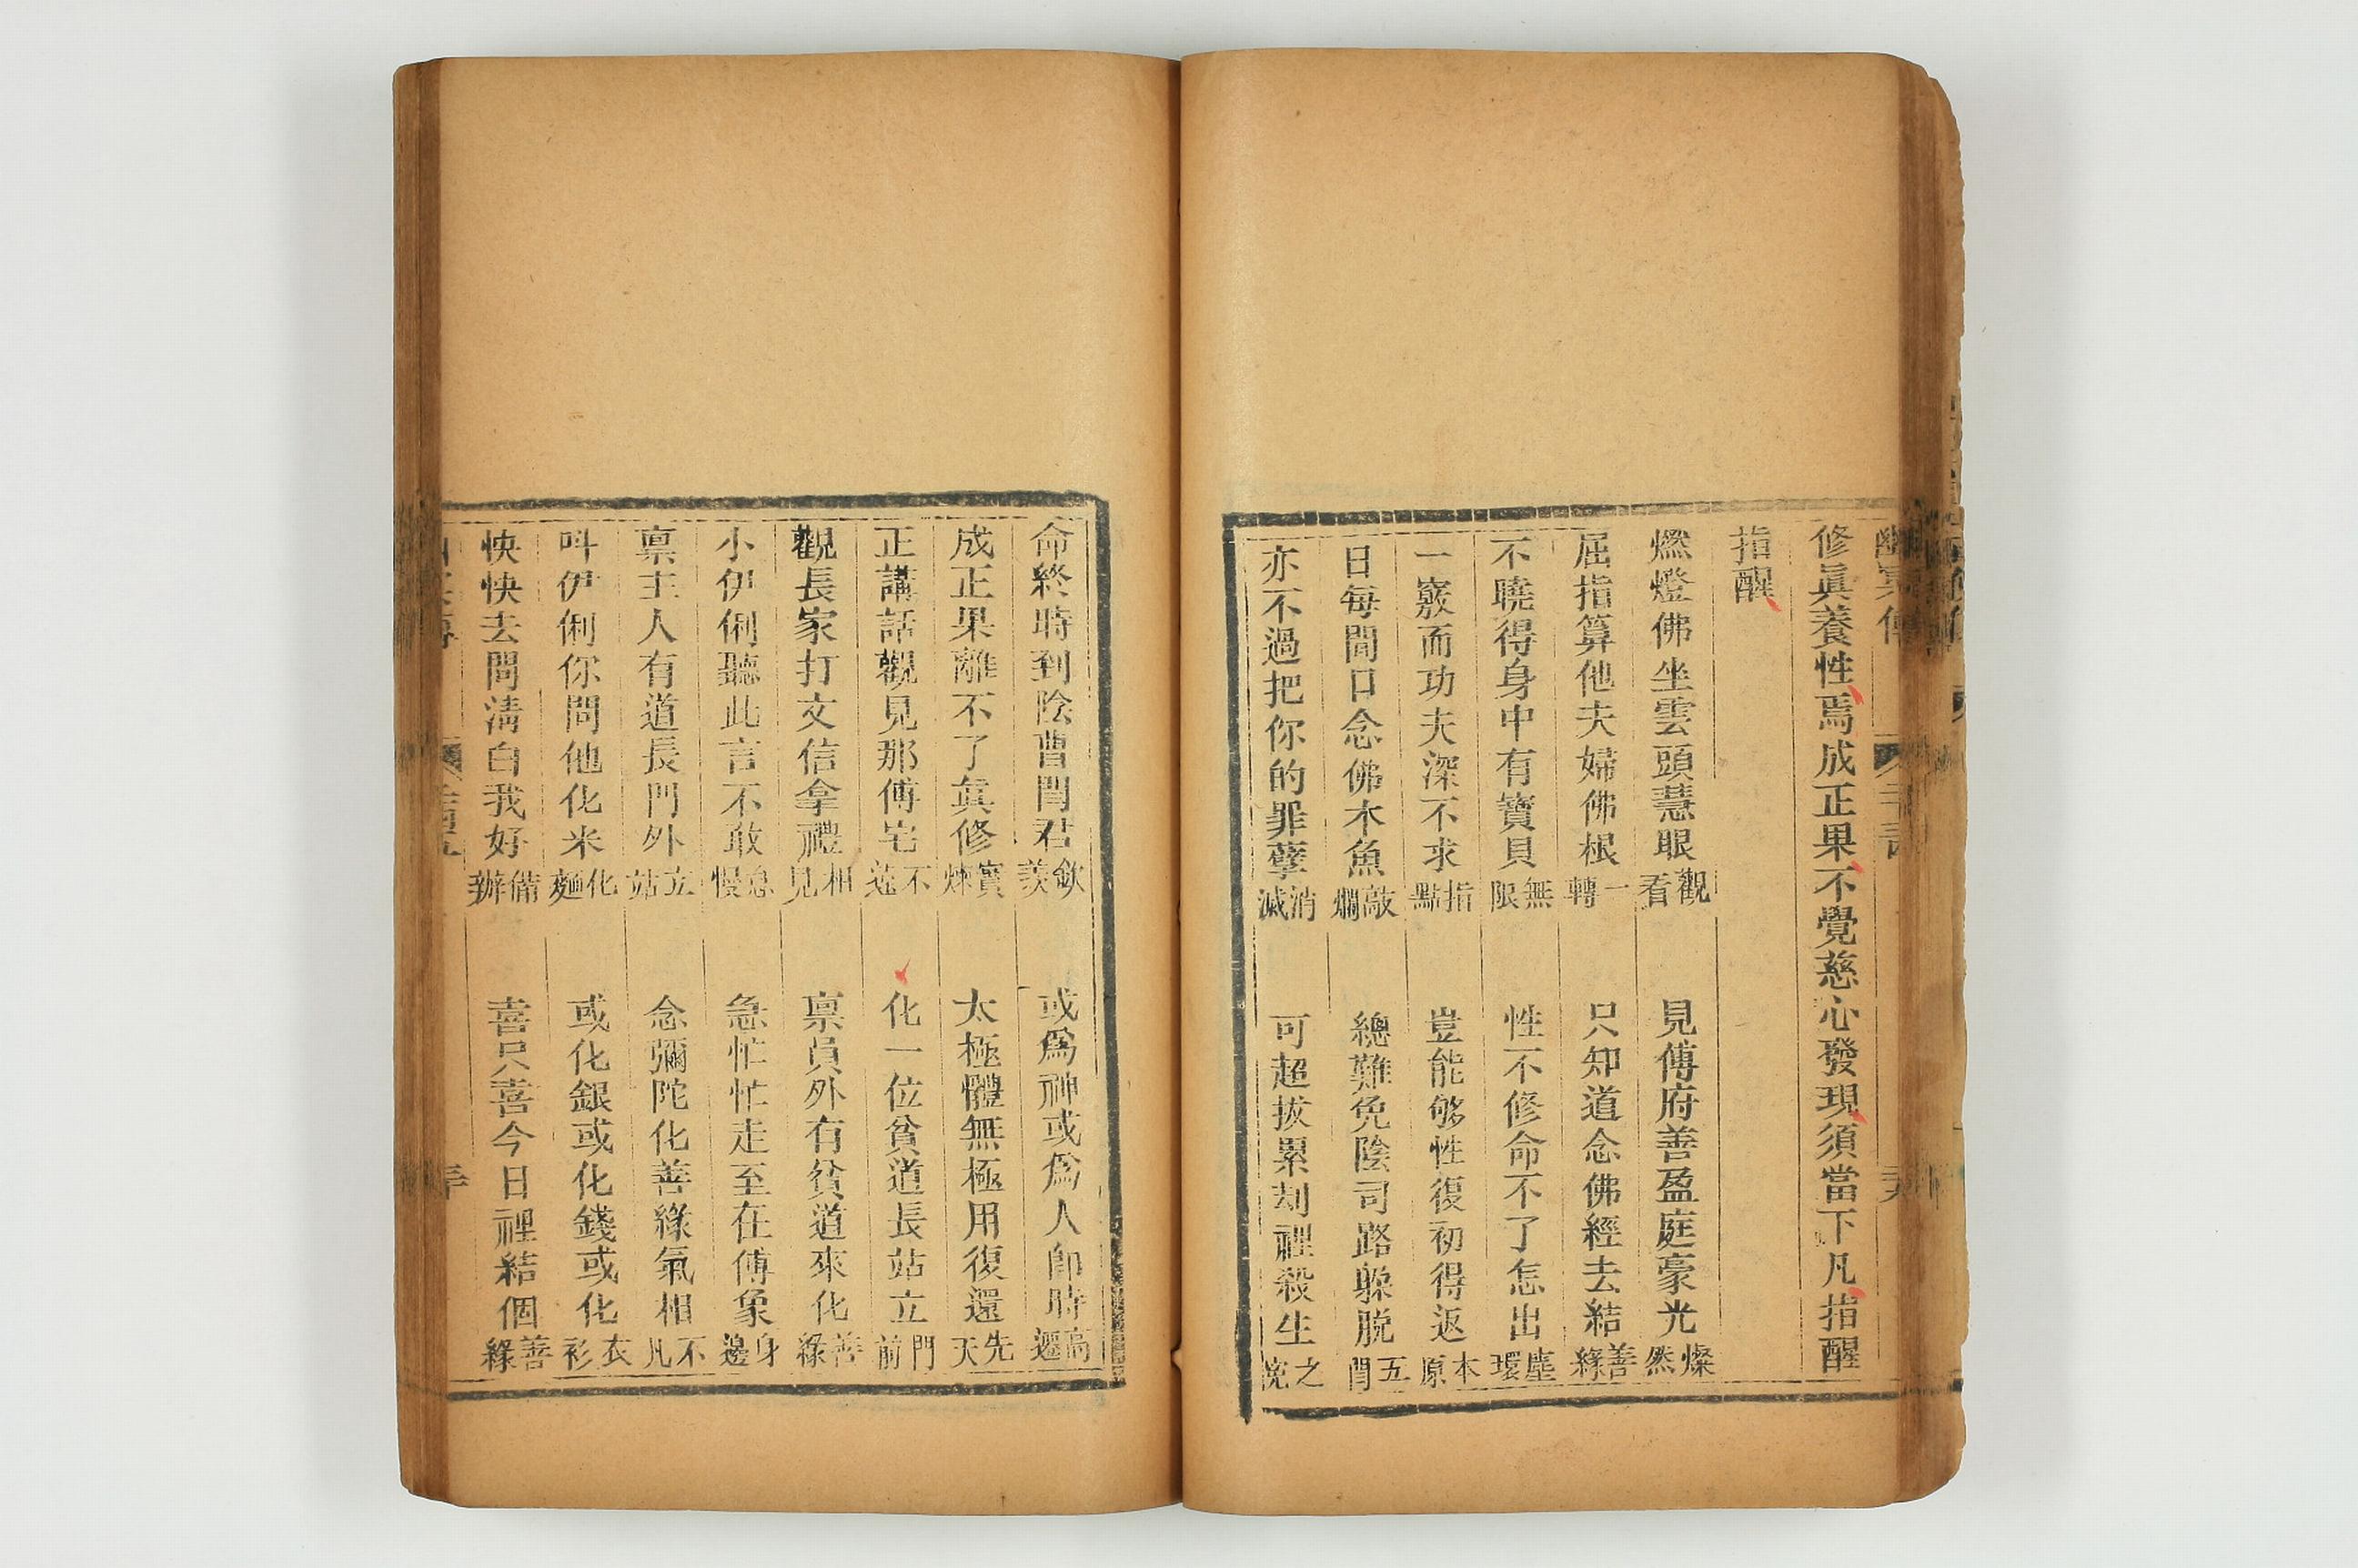 修眞養性焉成正果不覺慈心發現須當下凡指醒
指醒
燃燈佛坐雲頭慧眼觀看　見傅府善盈庭豪光燦然
屈指算他夫婦佛根一轉　只知道念佛經去結善緣
不曉得身中有寶貝無限　性不修命不了怎出塵環
一竅而功夫深不求指點　豈能够性復初得返本原
日每間口念佛木魚敲爛　總難免陰司路躱脫五閻
亦不過把你的罪孽消滅　可超拔累刦裡殺生之寃
命終時到陰曹閻君欽羡　或爲神或爲人卽時高遷
成正果離不了眞修實煉　太極體無極用復還先天
正講話觀見那傅宅不遠　化一位貧道長站立門前
觀長家打文信拿禮相見　禀員外有貧道來化善緣
小伊俐聽此言不敢怠慢　急忙忙走至在傅象身邊
禀主人有道長門外立站　念彌陀化善緣氣相不凡
呌伊俐你問他化米化麵　或化銀或化錢或化衣衫
快快去問淸白我好備辦　喜只喜今日裡結個善緣